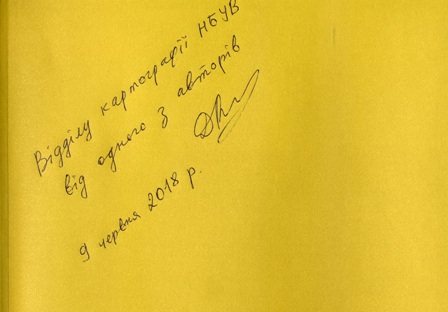 Відділу картографії НБУВ
від одного з авторів
9 червня 2018 р.